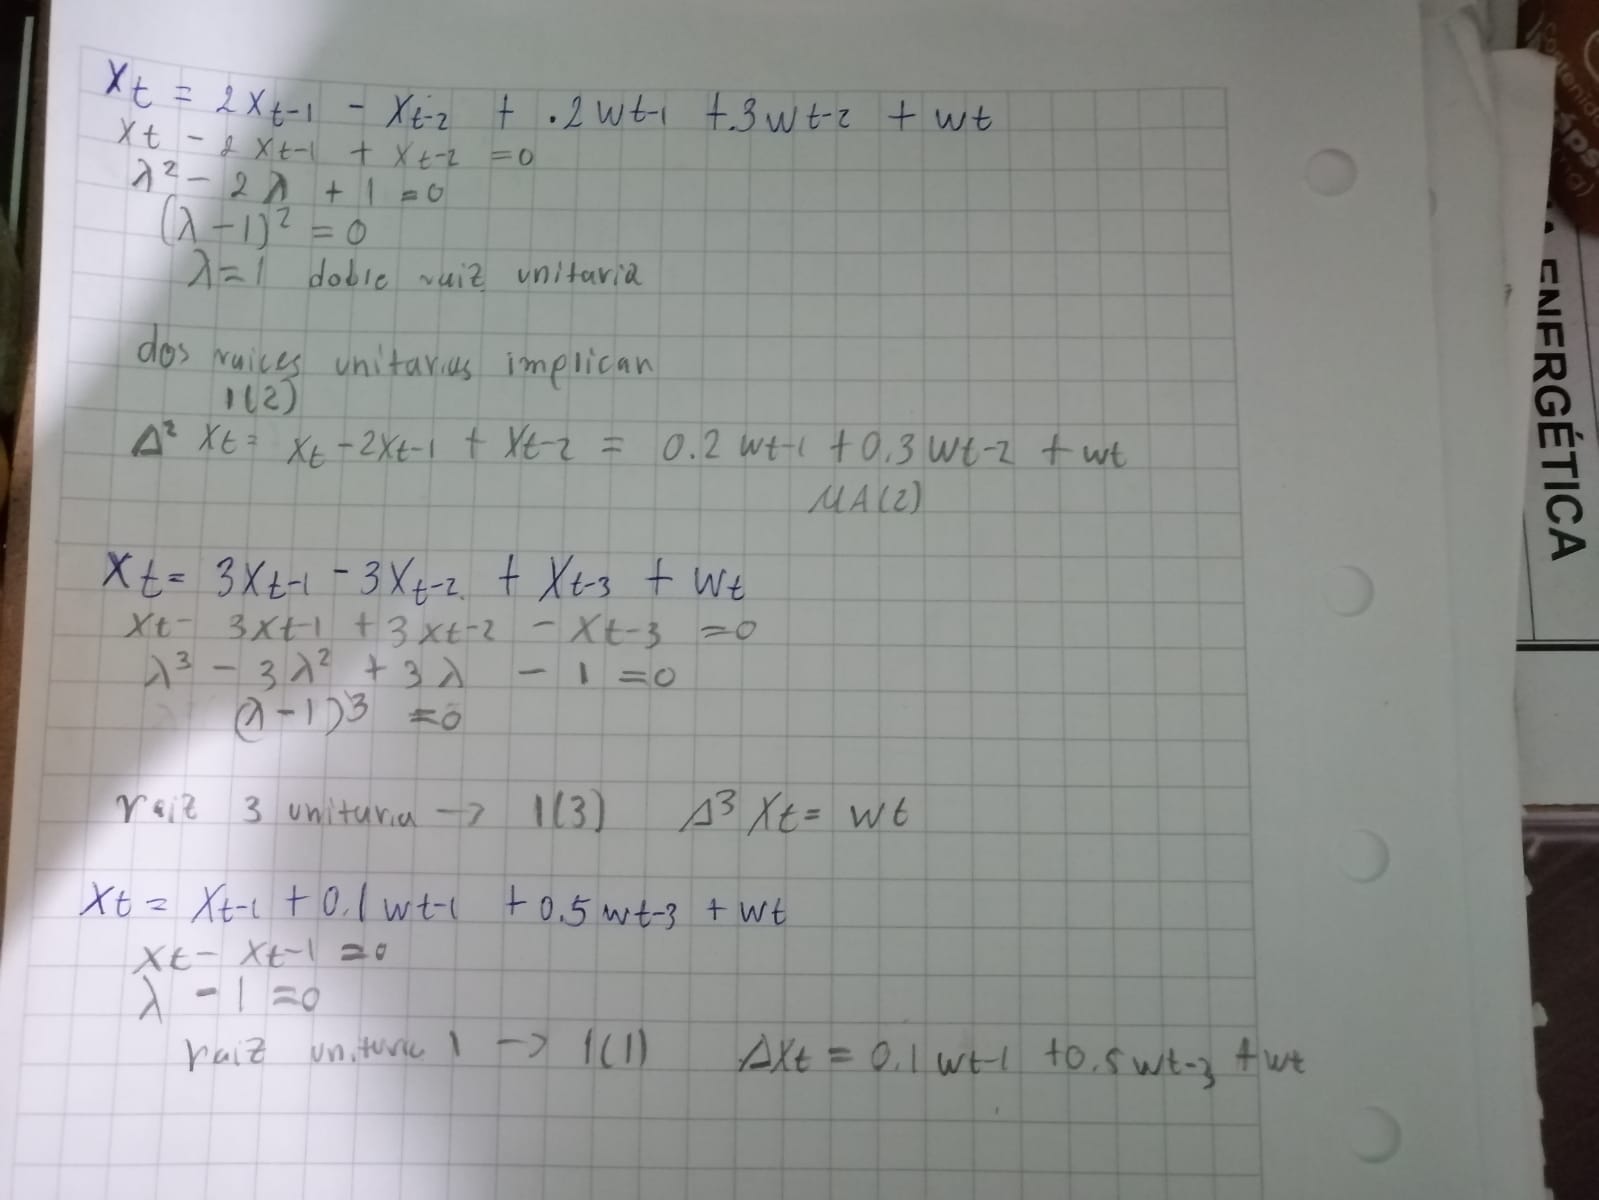 Xt = 2Xt-1 - Xt-2 + .2wt-1 +.3wt-2 + wt
xt - 2xt-1 + xt-2 =0
λ² - 2λ + 1 =0
(λ-1)² = 0
λ=1 doble raiz unitaria
dos raices unitarias implican
I(2)
Δ² Xt = Xt -2Xt-1 + Xt-2 = 0.2 wt-1 +0.3 wt-2 + wt
MA(2)
Xt = 3Xt-1 - 3Xt-2 + Xt-3 + wt
xt - 3xt-1 +3xt-2 - xt-3 =0
λ³ - 3λ² + 3λ - 1 =0
(λ-1)³ =0
raiz 3 unitaria → I(3) Δ³ Xt = wt
Xt = Xt-1 + 0.1 wt-1 + 0.5 wt-3 + wt
xt - xt-1 =0
λ - 1 =0
raiz unitaria 1 → I(1) ΔXt = 0.1 wt-1 +0.5 wt-3 + wt
ENERGÉTICA